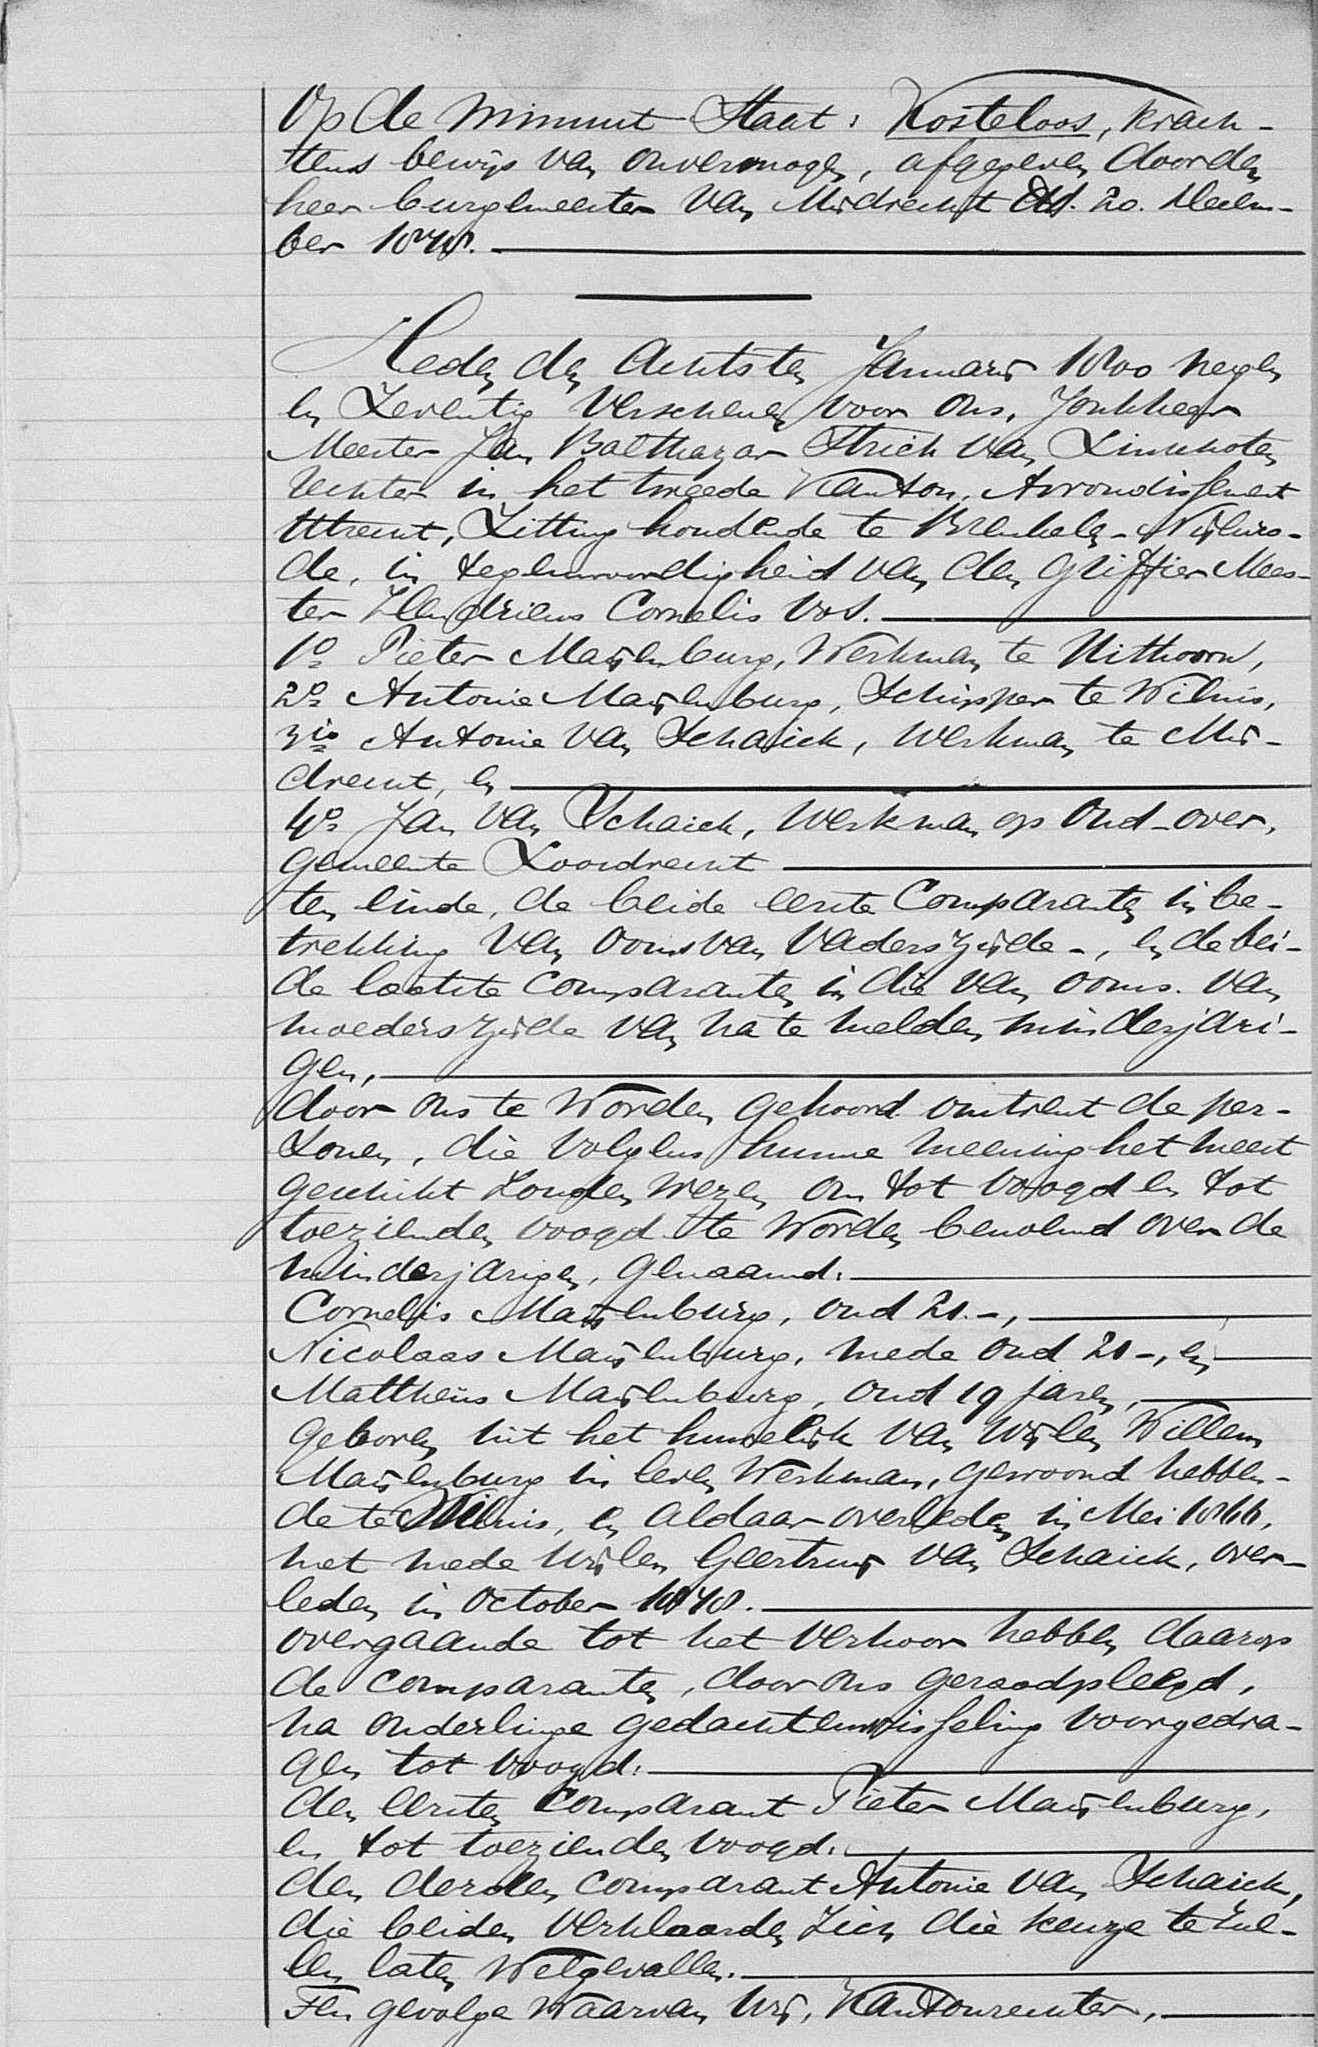 Op de minuut staat: Kosteloos, krach-
tens bewijs van onvermogen, afgegeven door den
heer burgemeester van Mijdrecht dd. 20. Decem-
ber 1878.
Heden den achtsten Januarij 1800 negen
en Zeventig verschenen voor ons, Jonkheer
Meester Jan Balthazar Strick van Linschoten
Rechter in het tweede Kanton, Arrondissement
Utrecht, Zitting houdende te Breukelen-Nijenro-
de, in tegenwoordigheid van den Griffier Mees-
ter Hendricus Cornelis Vos.
1o Pieter Maijenburg, Werkman te Uithoorn,
2o Antonie Maijenburg, Schipper te Wilnis,
3io Antonie van Schaick, Werkman te Mij-
drecht, en
4o Jan van Schaick, Werkman op Oud-over,
gemeente Loosdrecht
ten einde, de beide eerste Comparanten in be-
trekking van ooms van vaders zijde -, en de bei-
de laatste Comparanten in die van ooms. van
moeders zijde van na te melden minderjari-
gen,
door ons te worden gehoord omtrent de per-
zonen, die volgens hunne meening het meest
geschikt zouden wezen om tot voogd en tot
toezienden voogd te worden benoemd over de
minderjarigen, genaamd:
Cornelis Maijenburg, oud 21.-,
Nicolaas Maijenburg, mede oud 21-, en
Mattheus Maijenburg, oud 19 jaren,
geboren uit het huwelijk van wijlen Willem
Maijenburg in leven Werkman, gewoond hebben-
de te Wilnis, en aldaar overleden in Mei 1866,
met mede wijlen Geertruij van Schaick, over-
leden in October 1878.
overgaande tot het verhoor hebben daarop
de comparanten, door ons geraadpleegd,
na onderlinge gedachtenwisseling voorgedra-
gen tot voogd:
den eersten Comparant Pieter Maijenburg,
en tot toezienden voogd:
den derden comparant Antonie van Schaick,
die beiden verklaarden zich die keuze te zul-
len laten welgevallen.
Ten gevolge waarvan wij, Kantonrechter,